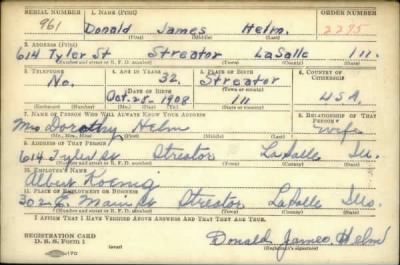 SERIAL NUMBER 1. NAME (Print) ORDER NUMBER
961 Donald James Helm. 2295
(First) (Middle) (Last)
2. ADDRESS (Print)
614 Tyler St Streator LaSalle Ill.
(Number and street or R. F. D. number) (Town) (County) (State)
3. TELEPHONE 4. AGE IN YEARS 5. PLACE OF BIRTH 6. COUNTRY OF CITIZENSHIP
No. 32. Streator
(Town or county)
DATE OF BIRTH
Oct. 25 - 1908 Ill USA.
(Exchange) (Number) (Mo.) (Day) (Yr.) (State or country)
7. NAME OF PERSON WHO WILL ALWAYS KNOW YOUR ADDRESS 8. RELATIONSHIP OF THAT PERSON
Mrs Dorothy Helm wife
(Mr., Mrs., Miss) (First) (Middle) (Last)
9. ADDRESS OF THAT PERSON
614 Tyler St Streator LaSalle Ills.
(Number and street or R. F. D. number) (Town) (County) (State)
10. EMPLOYER'S NAME
Albert Koenig
11. PLACE OF EMPLOYMENT OR BUSINESS
302 E. Main St Streator LaSalle Ills.
(Number and street or R. F. D. number) (Town) (County) (State)
I AFFIRM THAT I HAVE VERIFIED ABOVE ANSWERS AND THAT THEY ARE TRUE.
REGISTRATION CARD
D. S. S. Form 1 (over) Donald James Helm
(Registrant's signature)